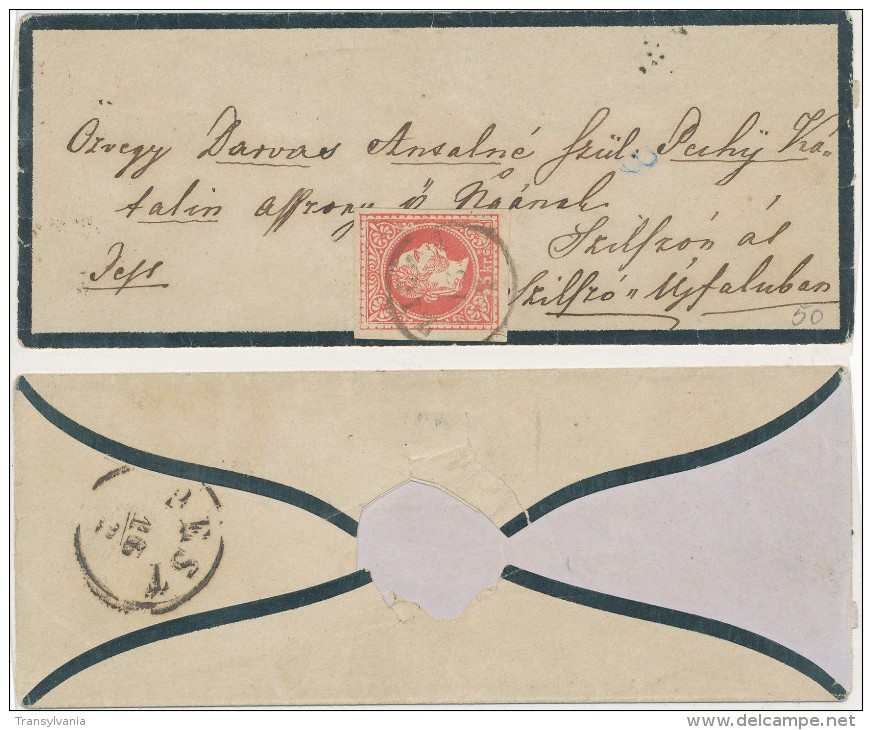 Özvegy Darvas Antalné Szül. Pechÿ Ka=
talin Asszony ő Ngának
Szilszón ás
Pest
Szilszó=Újfaluban
5 kr
50
PEST
16
Transylvania
www.delcampe.net